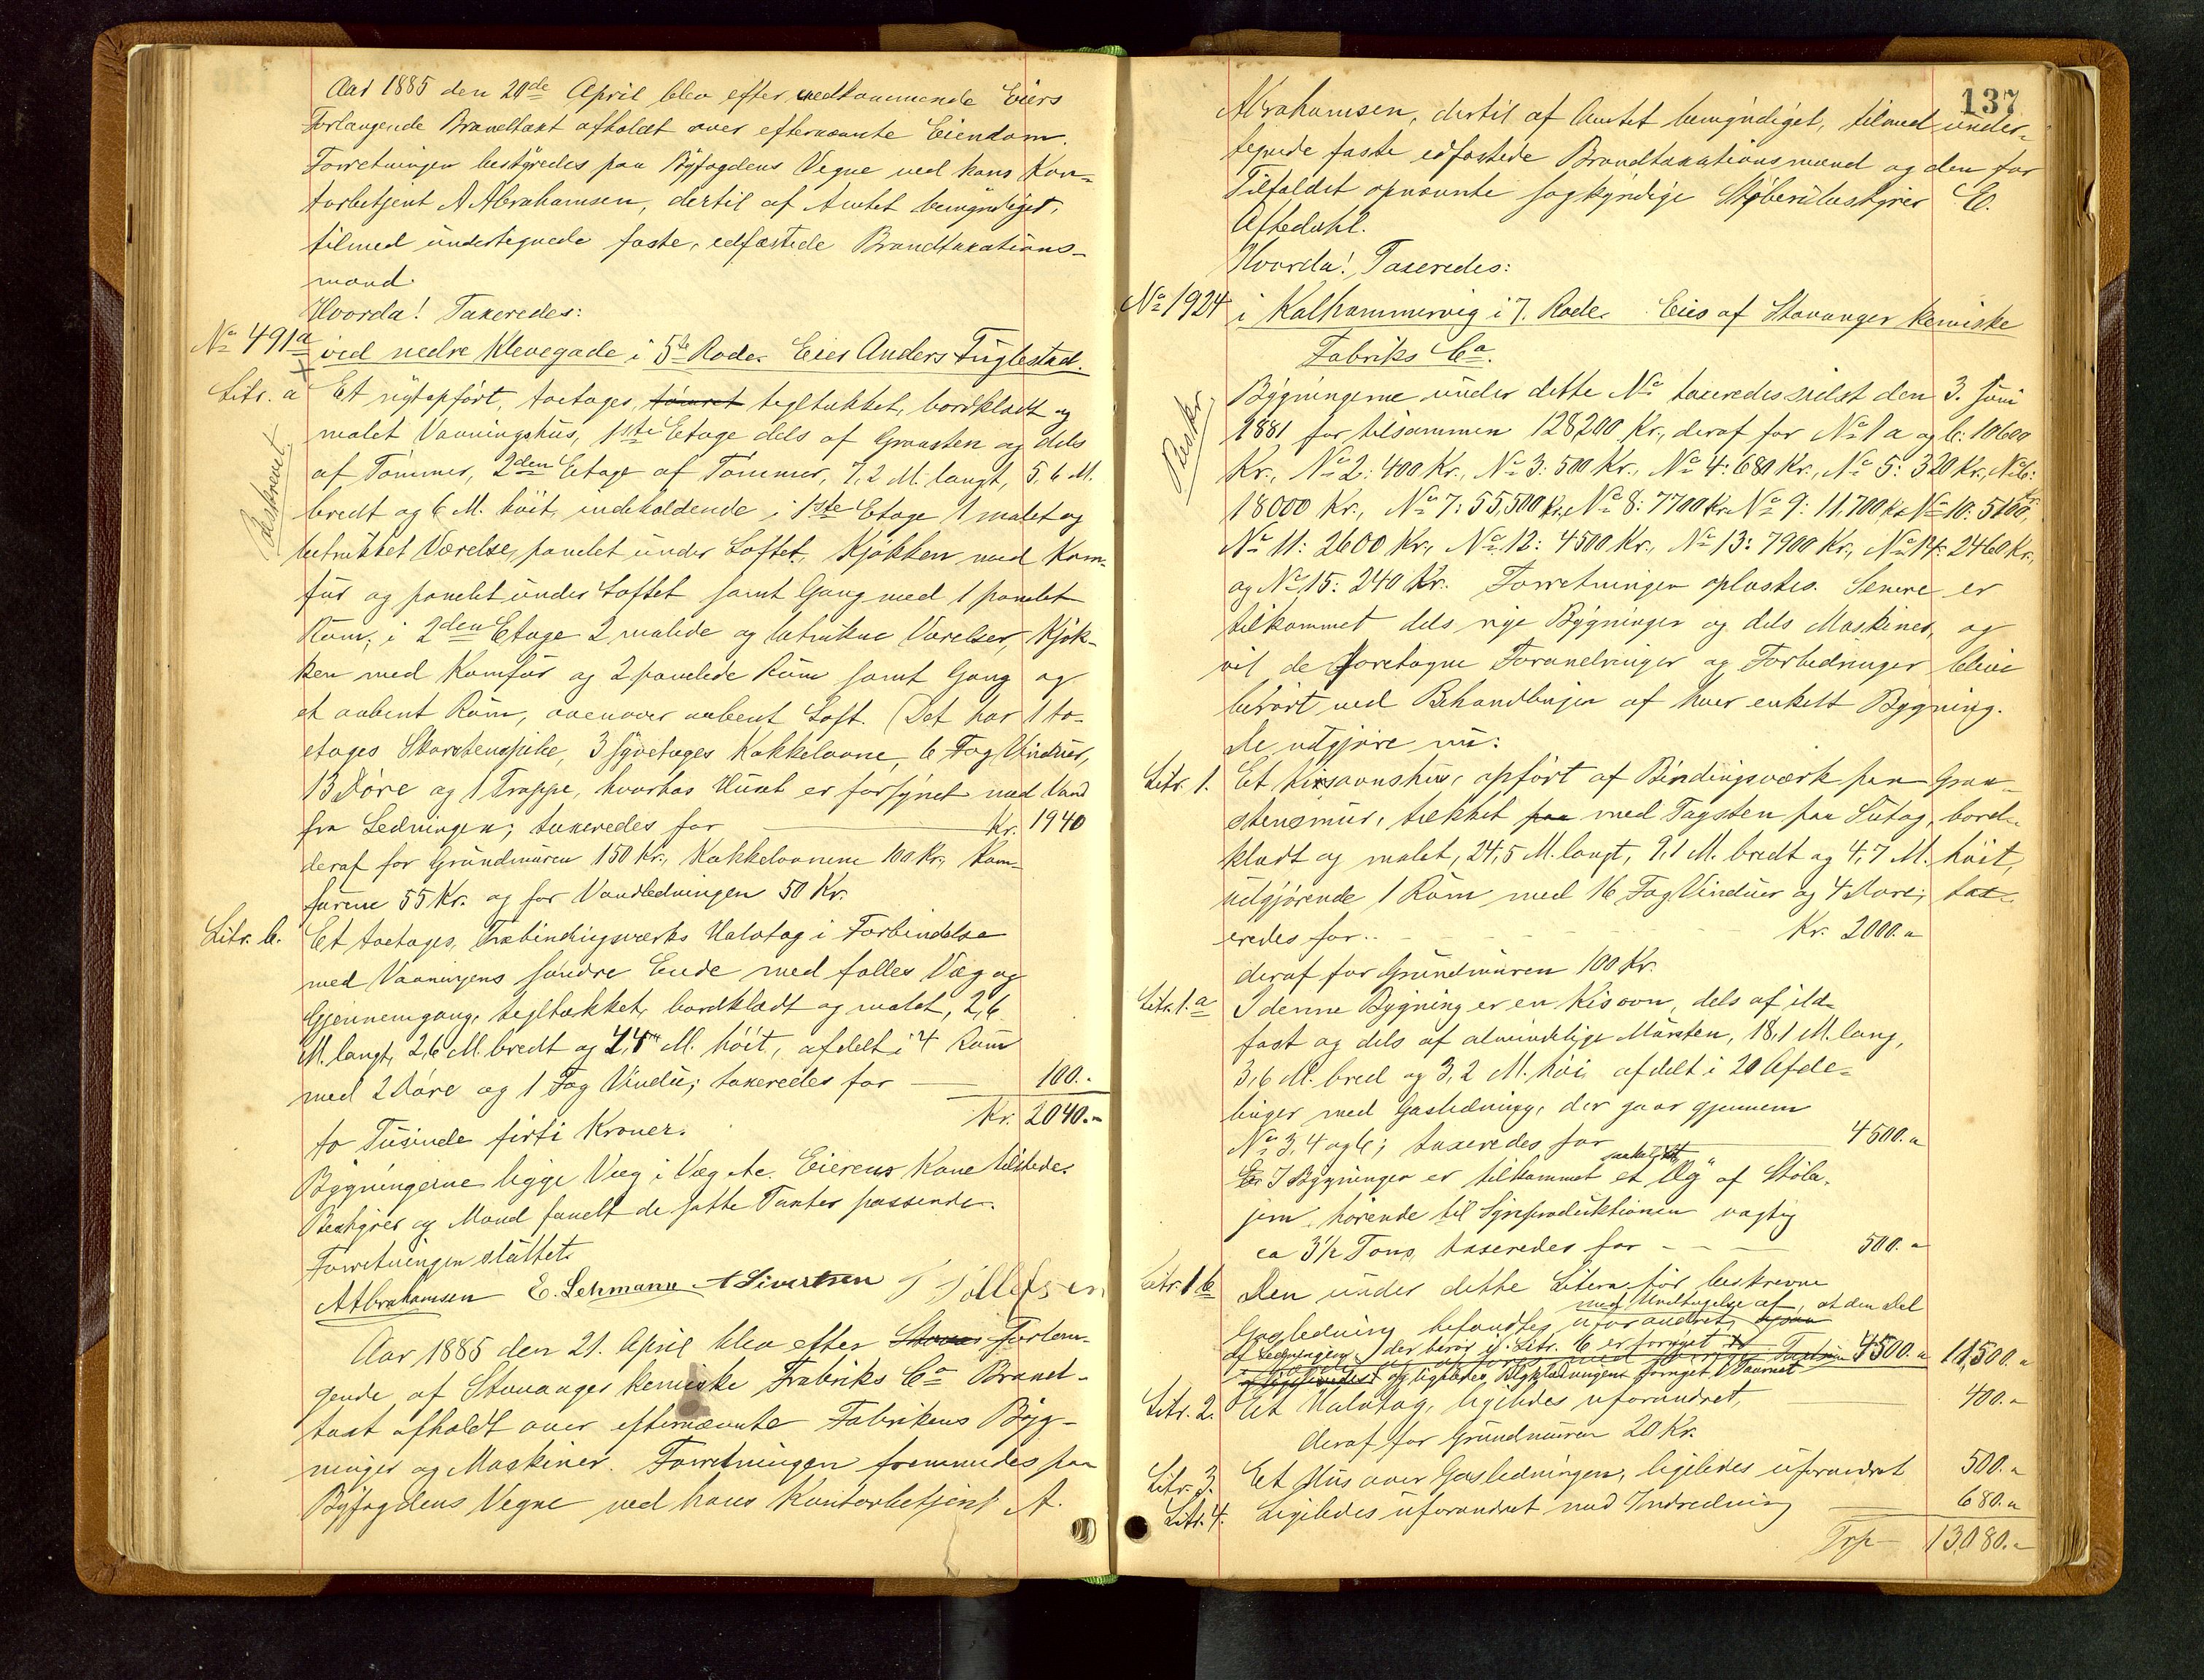 Aar 1885 den 20de April blev efter vedkommende Eiers
Forlangende Brandtaxt afholdt over efternævnte Eiendom.
Forretningen bestyredes paa Byfogdens Vegne ved hans Kon-
torbetjent A Abrahamsen, dertil af Amtet bemyndiget,
tilmed undertegnede faste, edfæstede Brandtaxations-
mænd.
Hvorda! Taxeredes:
No 491a ved nedre Klevegade i 5te Rode. Eier Anders Fuglestad.
Litr. a Et nyt opført, toetages, tømret tegltækket, bordklædt og
malet Vaaningshus, 1ste Etage dels af Graasten og dels
af Tømmer, 2den Etage af Tømmer, 7,2 M. langt, 5,6 M.
Beskrevet
bredt og 6 M. høit, indeholdende i 1ste Etage 1 malet og
betrukket Værelse, panelet under Loftet, Kjøkken med Kom-
fur og panelet under Loftet samt Gang med 1 panelet
Rum; i 2den Etage 2 malede og betrukne Værelser, Kjøk-
ken med Komfur og 2 panelede Rum samt Gang og
et aabent Rum, ovenover aabent Loft. (Det har 1 to-
etages Skorstenspibe, 3 Kakkelovne, 6 Fag Vinduer,
13 Døre og 1 Trappe, hvorhos Huset er forsynet med Vand
fra Ledningen; taxeredes for Kr. 1940
deraf for Grundmuren 150 Kr., Kakkelovnene 100 Kr., Kom-
furene 55 Kr. og for Vandledningen 50 Kr.
Litr. b. Et toetages, Træbindingsværks Halvtag i Forbindelse
med Vaaningens søndre Ende med fælles Væg og
Gjennemgang, tegltækket, bordklædt og malet, 2,6
M. langt, 2,6 M. bredt og 4,4 M. høit, afdelt i 4 Rum
med 2 Døre og 1 Fag Vindu; taxeredes for 100.-
Kr. 2040.-
to Tusinde firti Kroner.
Bygningerne ligge Væg i Væg etc. Eierens Kone tilstede.
Bestyrer og Mænd fandt de satte Taxter passende.
Forretningen sluttet.
A Abrahamsen E. Lehmann A Sivertsen T Tollefsen
Aar 1885 den 21. April blev efter Stava Forlan-
gende af Stavanger kemiske Fabriks Co Brand-
taxt afholdt over efternævnte Fabrikens Byg-
ninger og Maskiner. Forretningen fremmedes paa
Byfogdens Vegne ved hans Kontorbetjent A.
137
Abrahamsen, dertil af Amtet bemyndiget, tilmed under-
tegnede faste edfæstede Brandtaxationsmænd og den for
Tilfældet opnævnte sagkyndige Støberibestyrer E.
Aftedahl.
Hvorda! Taxeredes:
No 1924 i Kalhammervig i 7. Rode. Eies af Stavanger kemiske
Fabriks Co.
Beskr.
Bygningerne under dette No taxeredes sidst den 3. Juni
1881 for tilsammen 128200 Kr., deraf for No 1 a og b: 10600
Kr., No 2: 400 Kr., No 3: 500 Kr., No 4: 680 Kr., No 5: 320 Kr., No 6:
18000 Kr., No 7: 55,500 Kr., No 8: 7700 Kr. No 9: 11,700 Kr. No 10: 5100 Kr.,
No 11: 2600 Kr., No 12: 4500 Kr., No 13: 7900 Kr., No 14: 2460 Kr.,
og No 15: 240 Kr. Forretningen oplæstes. Senere er
tilkommet dels nye Bygninger og dels Maskiner, og
vil de foretagne Forandringer og Forbedringer blive
berørt ved Behandlingen af hver enkelt Bygning.
De udgjøre nu:
Litr. 1. Et kisovnshus, opført af Bindingsværk paa Graa-
stensmur, tækket paa med Tagsten paa Sutag, bord-
klædt og malet, 24,5 M. langt, 9,1 M. bredt og 4,7 M. høit,
udgjørende 1 Rum med 16 Fag Vinduer og 4 Døre; tax-
eredes for Kr. 2000.-
deraf for Grundmuren 100 Kr.
Litr. 1.a I denne Bygning er en Kisovn, dels af ild-
fast og dels af almindelige Mursten, 18,1 M. lang,
3,6 M. bred og 3,2 M. høi, afdelt i 20 Afde-
linger med Gasledning, der gaar gjennem
No 3, 4 og 6; taxeredes for 4500.-
I Bygningen er tilkommet et af Støbe-
jern, hørende til Syreproduktionen vægtig
ca 3½ Tons, taxeredes for 500.-
Litr. 1 b Den under dette Litera før beskrevne
med Undtagelse af, at den Del
Gasledning befandtes uforandret,
af Ledningen, der berør i Litr. 6 er fornyet 4500.- 11,500.-
og ligeledes Blyklædningens fornyet
Litr. 2. Et Halvtag, ligeledes uforandret, 400.-
deraf for Grundmuren 20 Kr.
Litr. 3. Et Hus over Gasledningen, ligeledes uforandret 500.-
Litr. 4. Ligeledes uforandret med Indredning 680.-
Trp 13,080.-